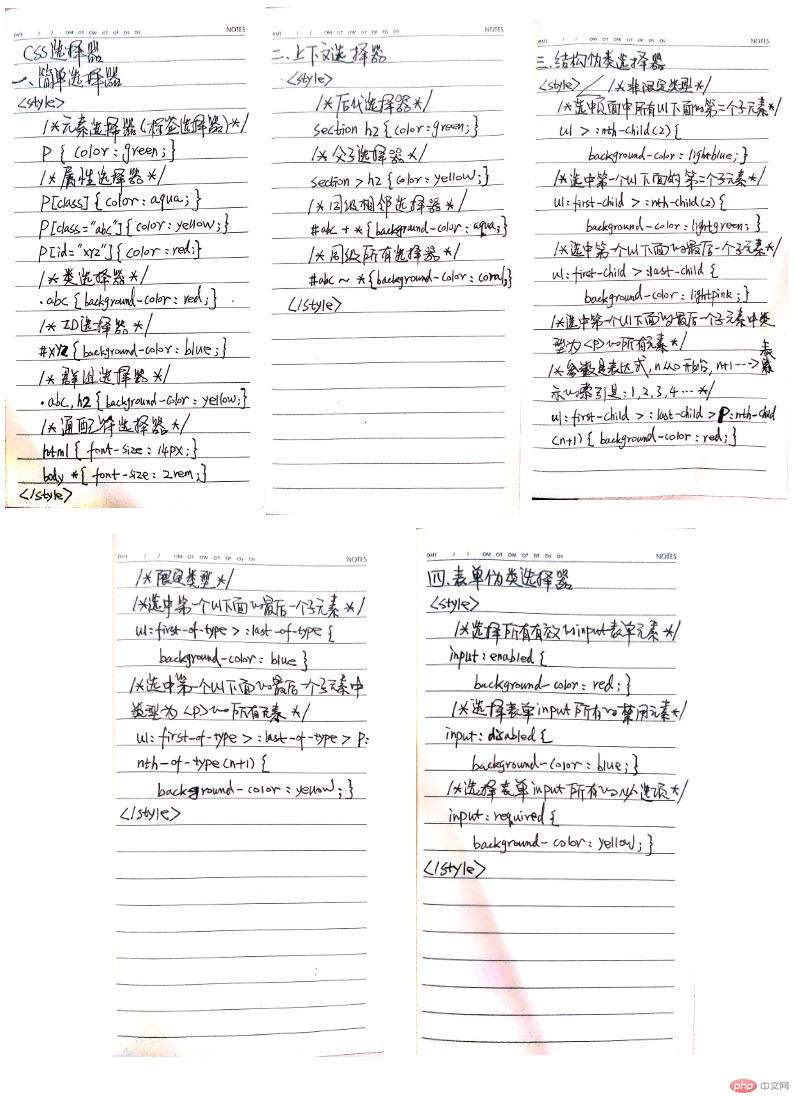 DATE / / OM OT OW OT OF OS OS NOTES
CSS选择器
一、简单选择器
<style>
/*元素选择器(标签选择器)*/
P { color:green; }
/*属性选择器*/
P[class] { color: aqua; }
P[class="abc"] { color: yellow; }
P[id="xyz"] { color: red; }
/*类选择器*/
.abc { background-color: red; }
/*ID选择器*/
#xyz { background-color: blue; }
/*群组选择器*/
.abc, h2 { background-color: yellow; }
/*通配符选择器*/
html { font-size: 14px; }
body *{ font-size: 2rem; }
</style>
DATE / / OM OT OW OT OF OS OS NOTES
二、上下文选择器
<style>
/*后代选择器*/
section h2 { color:green; }
/*父子选择器*/
section > h2 { color: yellow; }
/*同级相邻选择器*/
#abc + *{ background-color: aqua; }
/*同级所有选择器*/
#abc ~ *{ background-color: coral; }
</style>
DATE / / OM OT OW OT OF OS OS NOTES
三、结构伪类选择器
<style> /*非限定类型*/
/*选中页面中所有ul下面的第二个子元素*/
ul > :nth-child(2) {
background-color: lightblue; }
/*选中第一个ul下面的第二个子元素*/
ul: first-child > :nth-child(2) {
background-color: lightgreen; }
/*选中第一个ul下面的最后一个子元素*/
ul: first-child > :last-child {
background-color: lightpink; }
/*选中第一个ul下面的最后一个子元素中类
型为<P>的所有元素*/
/*参数是表达式, n从0开始, n+1 ---> 表
示的索引是: 1, 2, 3, 4 … */
ul: first-child > : last-child > P: nth-child
(n+1) { background-color: red; }
DATE / / OM OT OW OT OF OS OS NOTES
/*限定类型*/
/*选中第一个ul下面的最后一个子元素*/
ul: first-of-type > :last-of-type {
background-color: blue }
/*选中第一个ul下面的最后一个子元素中
类型为<P>的所有元素*/
ul: first-of-type > :last-of-type > P:
nth-of-type (n+1) {
background-color: yellow; }
</style>
DATE / / OM OT OW OT OF OS OS NOTES
四、表单伪类选择器
<style>
/*选择所有有效的input表单元素*/
input: enabled {
background-color: red; }
/*选择表单input所有的禁用元素*/
input: disabled {
background-color: blue; }
/*选择表单input所有的必选项*/
input: required {
background-color: yellow; }
</style>
php 中文网